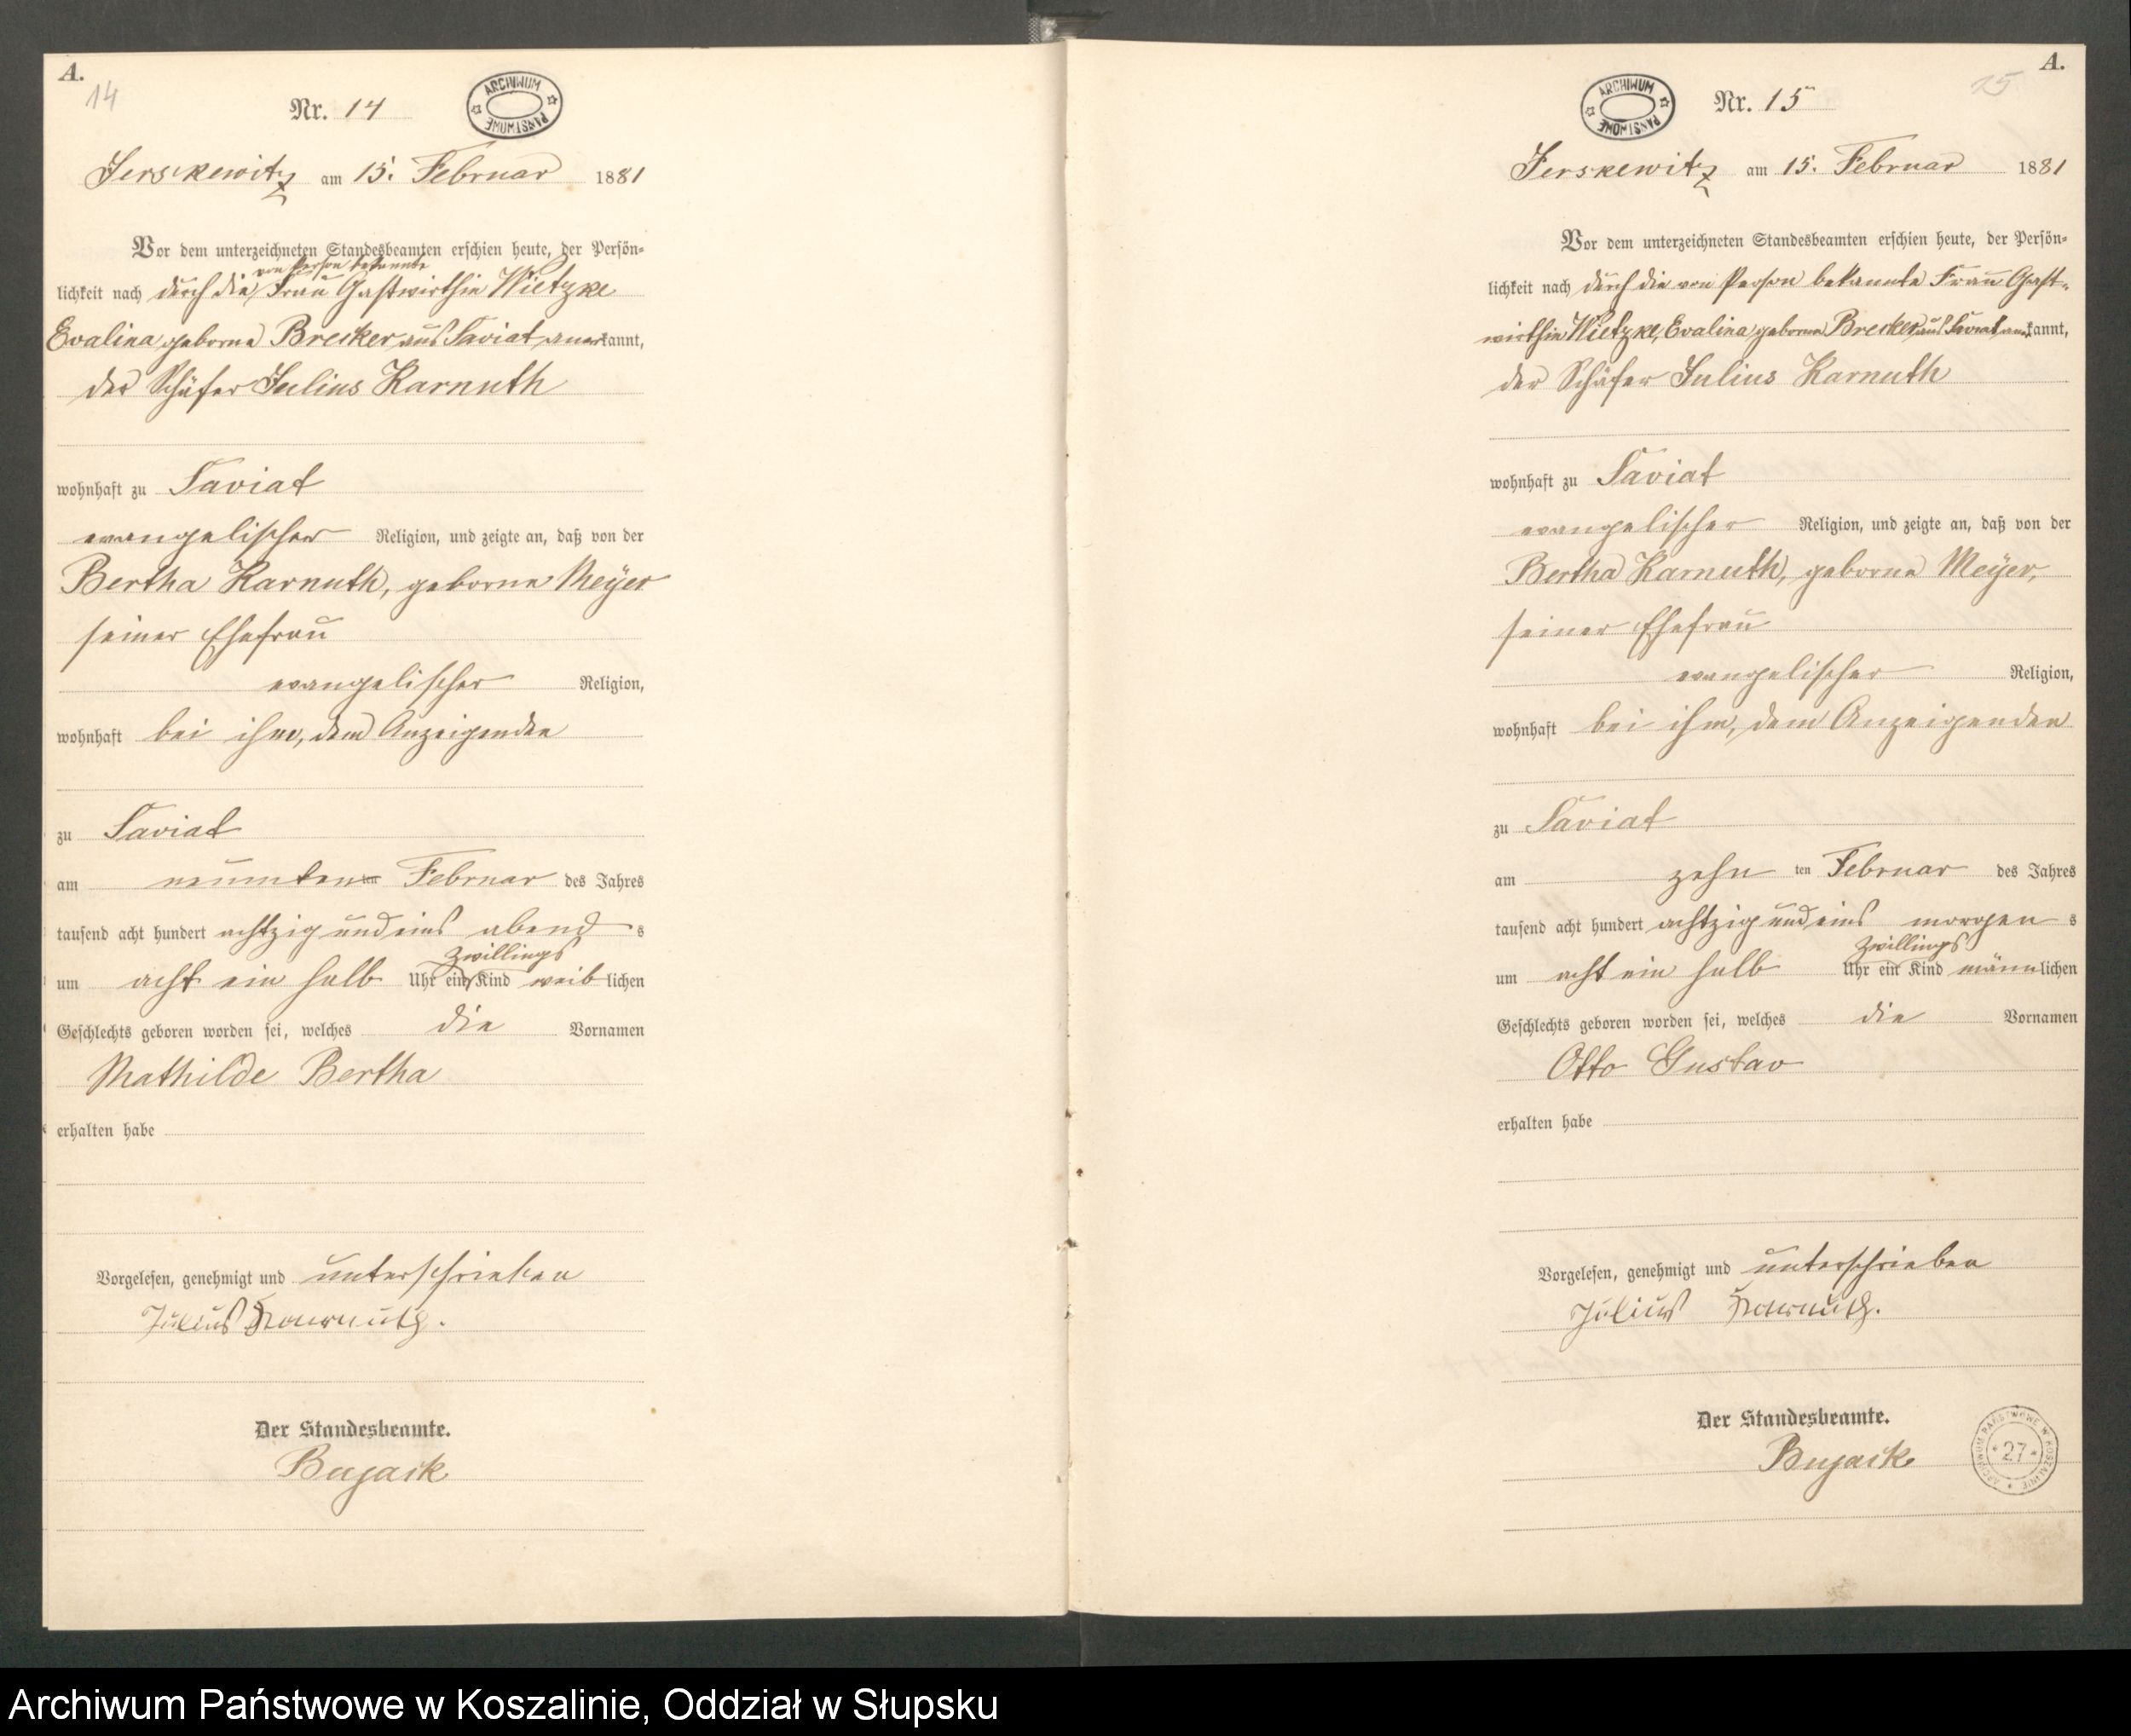 A.
14
Nr. 14
ARCHIWUM PAŃSTWOWE
Jerskewitz am 15. Februar 1881
Vor dem unterzeichneten Standesbeamten erschien heute, der Persön-
von Person bekannte
lichkeit nach durch die Frau Gastwirthin Wietzke
Evalina, geborne Brecker aus Saviat, anerkannt,
der Schäfer Julius Karnuth
wohnhaft zu Saviat
evangelischer Religion, und zeigte an, daß von der
Bertha Karnuth, geborne Meÿer
seiner Ehefrau
evangelischer Religion,
wohnhaft bei ihm, dem Anzeigenden
zu Saviat
am neunten ten Februar des Jahres
tausend acht hundert achtzig und eins abend s
Zwillings
um acht ein halb Uhr ein Kind weib lichen
Geschlechts geboren worden sei, welches die Vornamen
Mathilde Bertha
erhalten habe
Vorgelesen, genehmigt und unterschrieben
Julius Karnuth.
Der Standesbeamte.
Bujack
A.
15
ARCHIWUM PAŃSTWOWE
Nr. 15
Jerskewitz am 15. Februar 1881
Vor dem unterzeichneten Standesbeamten erschien heute, der Persön-
lichkeit nach durch die von Person bekannte Frau Gast-
wirthin Wietzke, Evalina geborne Brecker aus Saviat anerkannt,
der Schäfer Julius Karnuth
wohnhaft zu Saviat
evangelischer Religion, und zeigte an, daß von der
Bertha Karnuth, geborne Meÿer,
seiner Ehefrau
evangelischer Religion,
wohnhaft bei ihm, dem Anzeigenden
zu Saviat
am zehn ten Februar des Jahres
tausend acht hundert achtzig und eins morgen s
Zwillings
um acht ein halb Uhr ein Kind männlichen
Geschlechts geboren worden sei, welches die Vornamen
Otto Gustav
erhalten habe
Vorgelesen, genehmigt und unterschrieben
Julius Karnuth.
Der Standesbeamte.
Bujack
ARCHIWUM PAŃSTWOWE W KOSZALINIE
* 27 *
Archiwum Państwowe w Koszalinie, Oddział w Słupsku